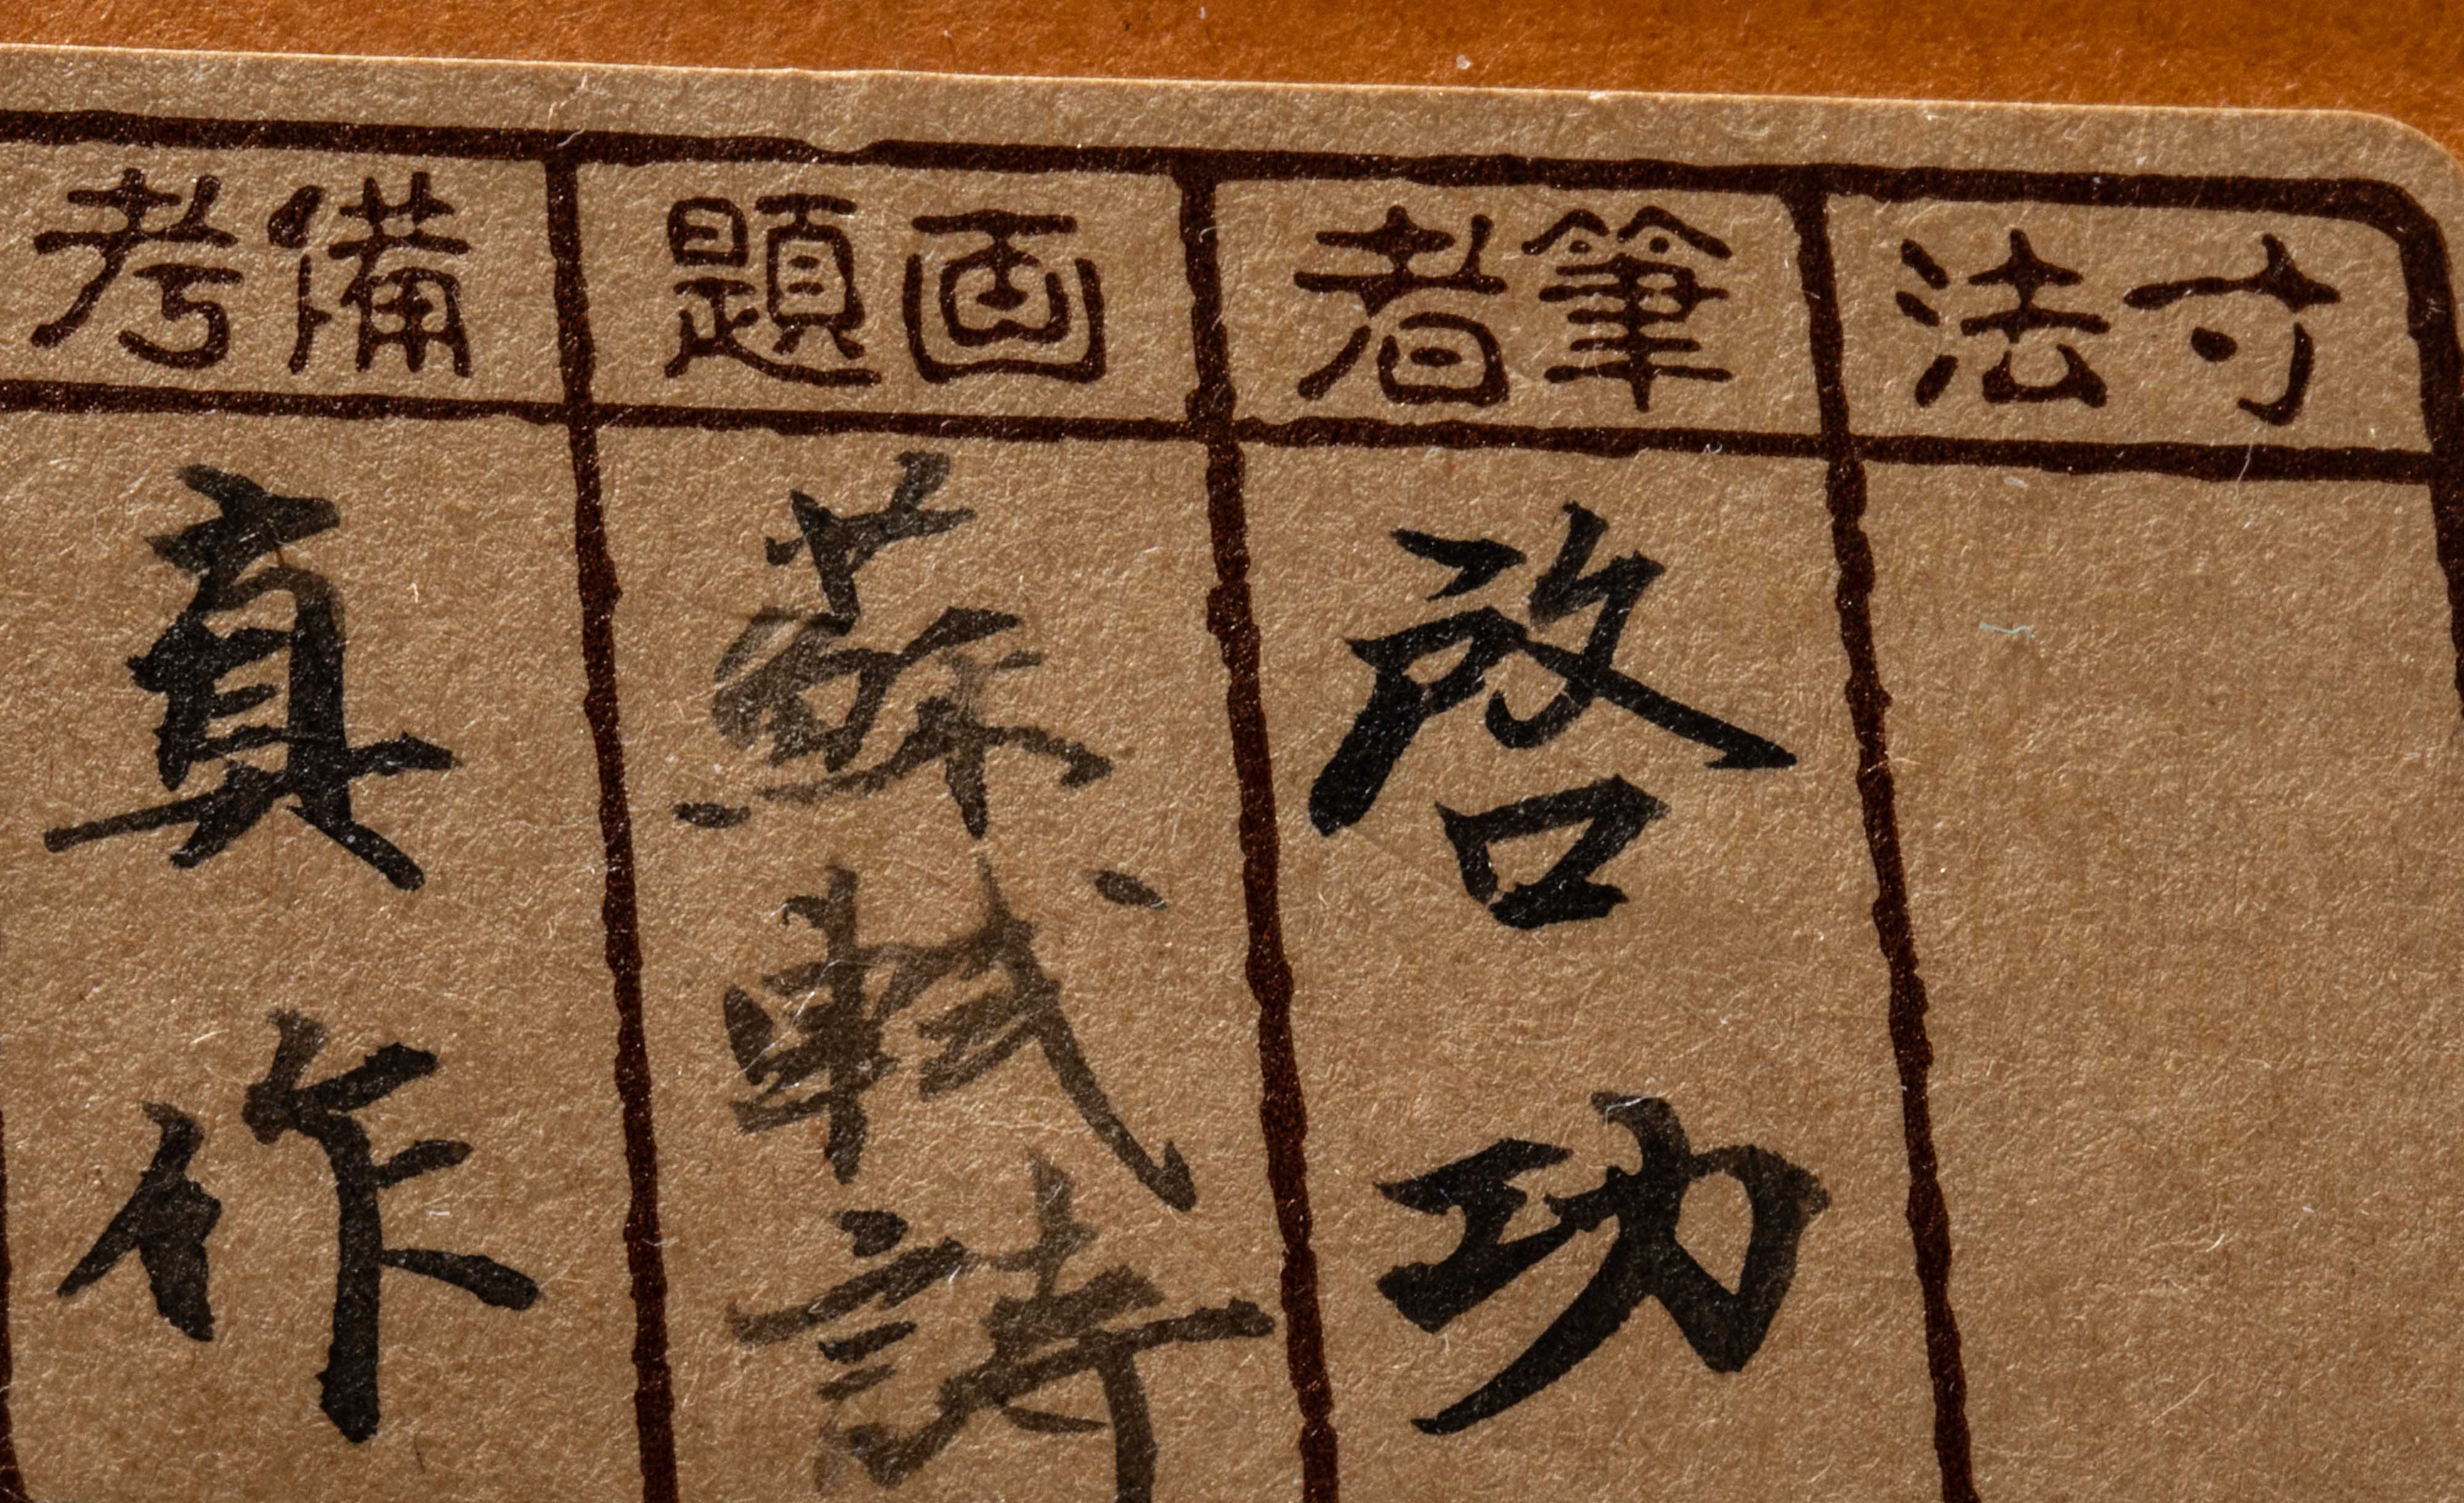 寸法
筆者
啓功
画題
蘇軾詩
備考
真作